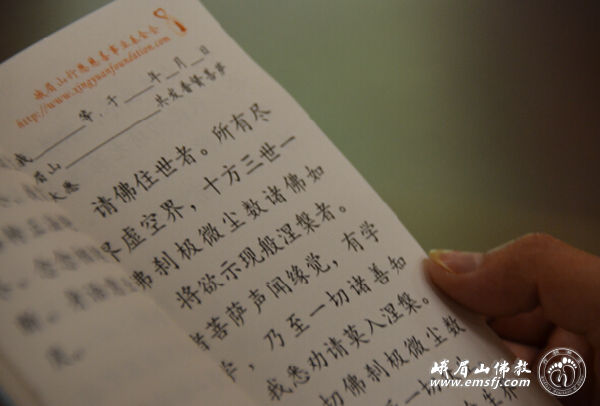 峨眉山行愿慈善事业基金会
http://www.xingyuanfoundation.com
我______等，于____年__月__日
眉山____________共发普贤菩萨
大愿
请佛住世者。所有尽
虚空界，十方三世一
佛刹极微尘数诸佛如
将欲示现般涅槃者。
诸菩萨声闻缘觉，有学
学，乃至一切诸善知
我悉劝请莫入涅槃。
切佛刹极微尘数
峨眉山佛教
www.emsfj.com